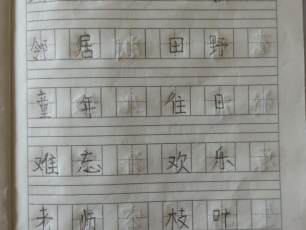 邻居 田野
童年 往日
难忘 欢乐
老师 枝叶